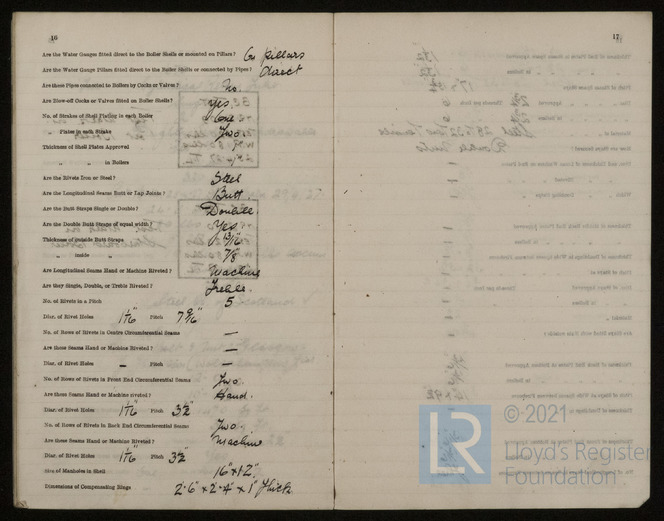 16
Are the Water Gauges fitted direct to the Boiler Shells or mounted on Pillars? On Pillars
Are the Water Gauge Pillars fitted direct to the Boiler Shells or connected by Pipes? Direct
Are these Pipes connected to Boilers by Cocks or Valves? No.
Are Blow-off Cocks or Valves fitted on Boiler Shells? Yes.
No. of Strakes of Shell Plating in each Boiler One
" Plates in each Strake Two.
Thickness of Shell Plates Approved
" " in Boilers
Are the Rivets Iron or Steel? Steel
Are the Longitudinal Seams Butt or Lap Joints? Butt.
Are the Butt Straps Single or Double? Double.
Are the Double Butt Straps of equal width? Yes.
Thickness of outside Butt Straps 13/16"
" inside " 7/8"
Are Longitudinal Seams Hand or Machine Riveted? Machine
Are they Single, Double, or Treble Riveted? Treble.
No. of Rivets in a Pitch 5
Diar. of Rivet Holes 1 1/16" Pitch 7 9/16"
No. of Rows of Rivets in Centre Circumferential Seams —
Are these Seams Hand or Machine Riveted? —
Diar. of Rivet Holes — Pitch —
No. of Rows of Rivets in Front End Circumferential Seams Two.
Are these Seams Hand or Machine riveted? Hand.
Diar. of Rivet Holes 1 1/16" Pitch 3 1/2"
No. of Rows of Rivets in Back End Circumferential Seams Two.
Are these Seams Hand or Machine Riveted? Machine
Diar. of Rivet Holes 1 1/16" Pitch 3 1/2"
Size of Manholes in Shell 16" x 12"
Dimensions of Compensating Rings 2'-6" x 2'-4" x 1" thick
17
LR
© 2021
Lloyd's Register
Foundation